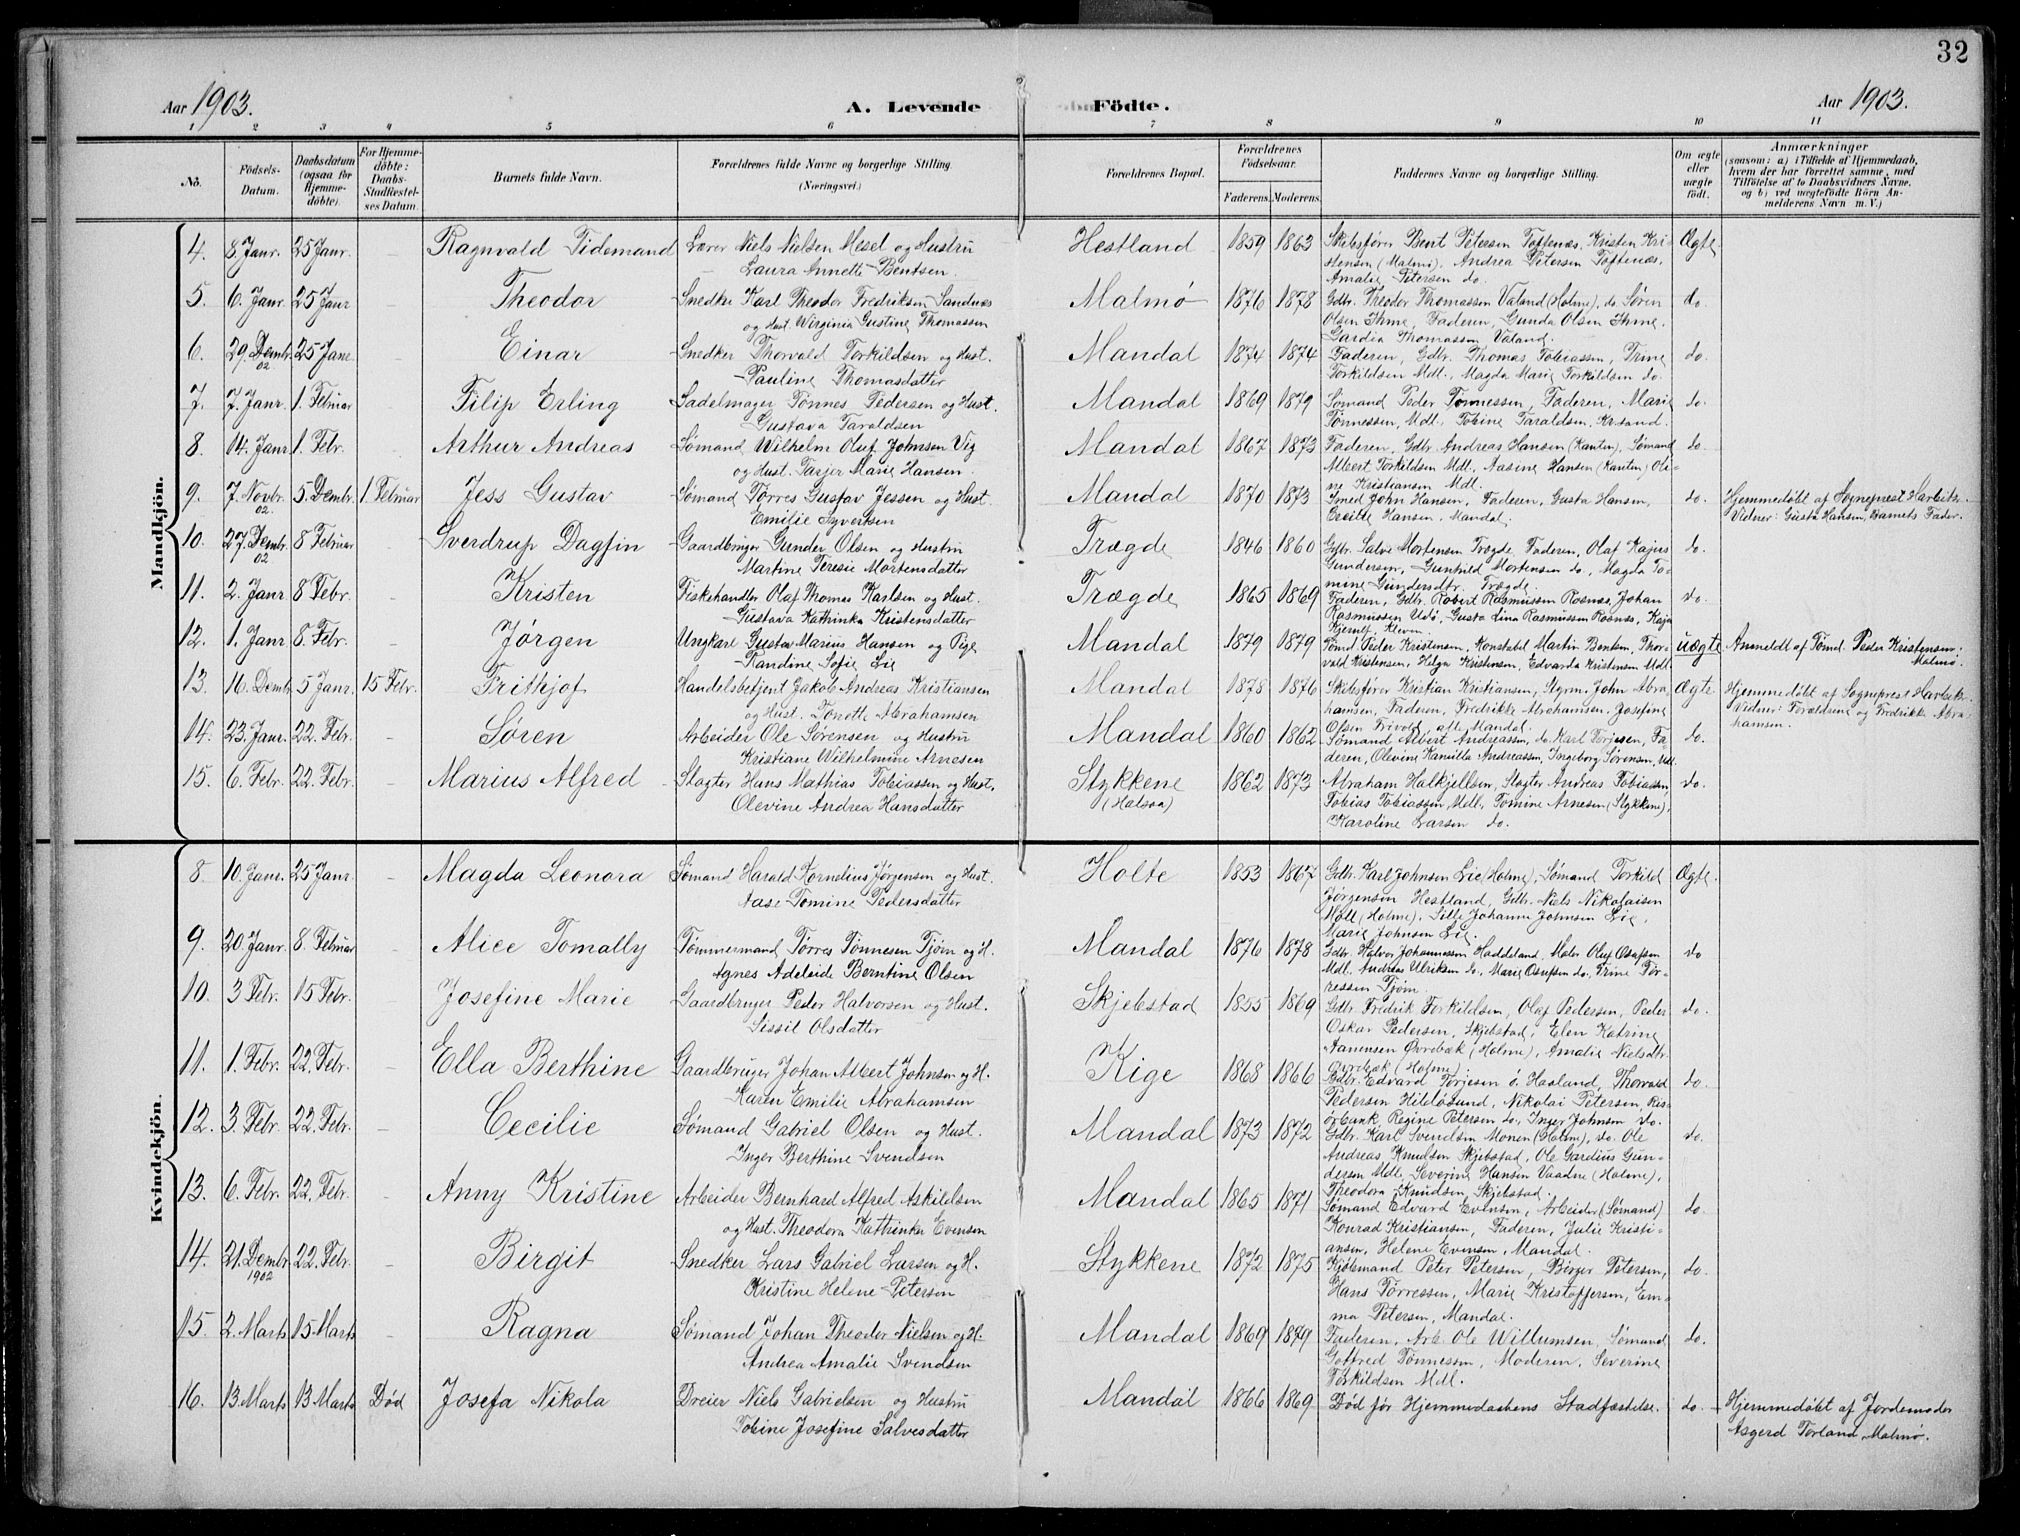 32
Aar 1903. A. Levende Födte. Aar 1903.
1 2 3 4 5 6 7 8 9 10 11
No. Födsels-Datum. Daabsdatum (ogsaa for Hjemme-döbte). For Hjemme-döbte: Daabs-Stadfæstel-ses Datum. Barnets fulde Navn. Forældrenes fulde Navne og borgerlige Stilling (Næringsvei.) Forældrenes Bopæl. Forældrenes Födselsaar. Faderens. Moderens. Faddernes Navne og borgerlige Stilling. Om ægte eller uægte födt. Anmærkninger (saasom: a) i Tilfælde af Hjemmedaab, hvem der har forrettet samme, med Tilföielse af to Daabsvidners Navne, og b) ved uægtefödte Börn An-melderens Navn m. V.)
Mandkjön.
4. 8. Janr. 25 Janr. - Ragnvald Tidemand Lærer Niels Nielsen Mesel og Hustru Hestland 1859 1863 Skibsfører Bent Petersen Toftenæs, Kristen Kri- Ægte
Laura Annette Bentsen. stensen (Malmø), Andrea Petersen Toftenæs,
Amalie Petersen do.
5. 6. Janr. 25 Janr - Theodor Snedker Karl Theodor Fredriksen Sandnæs Malmø 1876 1878 Gdbr. Theodor Thomassen Valand (Holme), do. Søren do.
og Hust. Virginia Gustine Thomassen Olsen Ihme, Faderen, Gunda Olsen Ihme,
Gardia Thomassen Valand.
6. 29. Dembr. 02 25 Janr - Einar Snedker Thorvald Torkildsen og Hust. Mandal 1874 1874 Faderen, Gdbr. Thomas Tobiassen, Trine do.
Pauline Thomasdatter Torkildsen Mdl., Magda Marie Torkildsen do.
7. 7. Janr. 1. Februar - Filip Erling Sadelmager Tønnes Pedersen og Hust. Mandal 1869 1879 Sømand Peder Tønnessen, Faderen, Marie do.
Gustava Taraldsen Tønnessen, Mdl., Tobine Taraldsen, Krsand.
8. 14. Janr 1. Febr. - Arthur Andreas Sømand Wilhelm Oluf Johnsen Vig Mandal 1867 1873 Faderen, Gdbr Andreas Hansen (Kanten), Sømand do.
og Hust. Tarjer Marie Hansen. Albert Torkildsen Mdl, Aasine Hansen (Kanten) Oli-
ne Kristiansen Mdl.
9. 7. Novbr. 02. 5. Dembr. 1. Februar Jess Gustav Sømand Tørres Gustav Jessen og Hust. Mandal 1870 1873 Smed John Hansen, Faderen, Gusta Hansen, do. Hjemmedøbt af Sogneprest Harbitz.
Emilie Syvertsen Cecilie Hansen. Mandal. Vidner: Gusta Hansen, Barnets Fader.
10. 27. Dembr. 02 8 Februar - Sverdrup Dagfin Gaardbruger Gunder Olsen og Hustru Trægde 1846 1860 Gdbr. Salve Mortensen Trægde, Faderen, Olaf Kajus do.
Martine Teresie Mortensdatter Gundersen, Gunhild Mortensen do., Magda To-
mine Gundersdtr. Trægde.
11. 2. Janr 8 Febr. - Kristen Fiskehandler Olaf Thomas Karlsen og Hust. Trægde 1865 1869 Faderen, Gdbr. Robert Rasmussen Rosnæs, Johan do.
Gustava Kathinka Kristensdatter Rasmussen Udø, Gusta Lina Rasmussen Rosnæs, Kaja
12. 1. Janr 8. Febr. - Jørgen Ungkarl Gustav Marius Hansen og Pige Mandal 1879 1879 Sømd. Peder Kristensen, Konstabel Martin Bentsen, Thor- uægte Anmeldt af Sømd. Peder Kristensen,
Randine Sofie Lie vald Kristensen, Helga Kristensen, Edvarda Kristensen Mdl. Malmø.
13. 16. Dembr 5 Janr. 15 Febr. Frithjof Handelsbetjent Jakob Andreas Kristiansen Mandal 1878 1876 Skibsfører Kristian Kristiansen, Styrm. John Abra Ægte Hjemmedøbt af Sogneprest Harbitz.
og Hust. Tonette Abrahamsen hamsen, Faderen, Fredrikke Abrahamsen, Josefine Vidner: Forældrene og Fredrikke Abra-
Olsen Trivold, alle Mandal. hamsen.
14. 23. Janr. 22. Febr. - Søren Arbeider Ole Sørensen og Hustru Mandal 1860 1862 Sømand Albert Andreassen, do. Karl Torjesen, Fa- do.
Kristiane Wilhelmine Arnesen deren, Olevine Kamilla Andreassen, Ingeborg Sørensen, Mdl.
15. 6. Febr. 22. Febr. - Marius Alfred Slagter Hans Mathias Tobiassen og Hust. Stykkene 1862 1873 Abraham Halkjellsen, Slagter Andreas Tobiassen, do.
Olevine Andrea Hansdatter (Halsaa) Tobias Tobiassen Mdl., Tomine Arnesen (Stykkene),
Karoline Larsen do.
Kvindekjön.
8. 10. Janr. 25 Janr. - Magda Leonora Sømand Harald Kornelius Jørgensen og Hust. Holte 1853 1867 Gdbr. Karl Johnsen Lie (Holme), Sømand Torkild Ægte.
Aase Tomine Pedersdatter Jørgensen Hestland, Gdbr. Niels Nikolaisen
Møll (Holme), Sille Johanne Johnsen Lie,
Marie Johnsen Lie.
9. 20. Janr. 8. Februar - Alice Tomally Tømmermand Tørres Tønnesen Tjøm og H. Mandal 1876 1878 Gdbr. Halvor Johannessen Haddeland, Maler Oluf Osufsen do
Agnes Adeleide Berntine Olsen Mdl. Andreas Ulriksen do., Marie Osufsen do., Trine Tør-
ressen Tjøm.
10. 3 Febr. 15 Febr. - Josefine Marie Gaardbruger Peder Halvorsen og Hust. Skjebstad 1855 1869 Gdbr. Fredrik Torkildsen, Olaf Pedersen, Peder do.
Sissil Olsdatter Oskar Pedersen, Skjebstad, Elen Katrine
Aanensen Øvrebæk (Holme), Amalie Nielsdtr.
Øvrebæk (Holme).
11. 1. Febr. 22. Febr. - Ella Berthine Gaardbruger Johan Albert Johnsen og H. Kige 1868 1866 Gdbr. Edvard Torjesen ö. Haaland, Thorvald do.
Karen Emilie Abrahamsen Pedersen Hildøsund, Nikolai Petersen, Ris-
øbank, Regine Petersen do., Inger Johnsen do.
12. 3. Febr. 22. Febr. - Cecilie Sømand Gabriel Olsen og Hust. Mandal 1873 1872 Gdbr. Karl Svendsen Monen (Holme), do. Ole do.
Inger Berthine Svendsen Andreas Knudsen Skjebstad, Ole Gardius Gun-
dersen Mdl., Severine Hansen Vaadne (Holme),
Theodora Knudsen, Skjebstad.
13. 6. Febr. 22. Febr. - Anny Kristine Arbeider Bernhard Alfred Askildsen Mandal 1865 1871 Sømand Edvard Evensen, Arbeider (Sømand) do.
og Hust. Theodora Kathinka Evensen Konrad Kristiansen, Faderen, Julie Kristi-
ansen, Helene Evensen, Mandal.
14. 21. Dembr. 1902 22. Febr. - Birgit Snedker Lars Gabriel Larsen og H. Stykkene 1872 1875 Kjøbmand Peter Petersen, Birger Petersen, do.
Kristine Helene Petersen Hans Tørressen, Marie Kristoffersen, Em-
ma Petersen, Mandal.
15. 2. Marts 15. Marts - Ragna Sømand Johan Theodor Nielsen og H. Mandal 1869 1879 Faderen, Arb. Ole Willumsen, Sømand do.
Andrea Amalie Svendsen Gotfred Tønnessen, Moderen, Severine
Torkildsen Mdl.
16. 13. Marts 13 Marts Død Josefa Nikola Dreier Niels Gabrielsen og Hustru Mandal 1866 1869 Død før Hjemmedaabens Stadfæstelse. do. Hjemmedøbt af Jordemoder
Tobine Josefine Salvesdatter Asgerd Torland, Malmø.